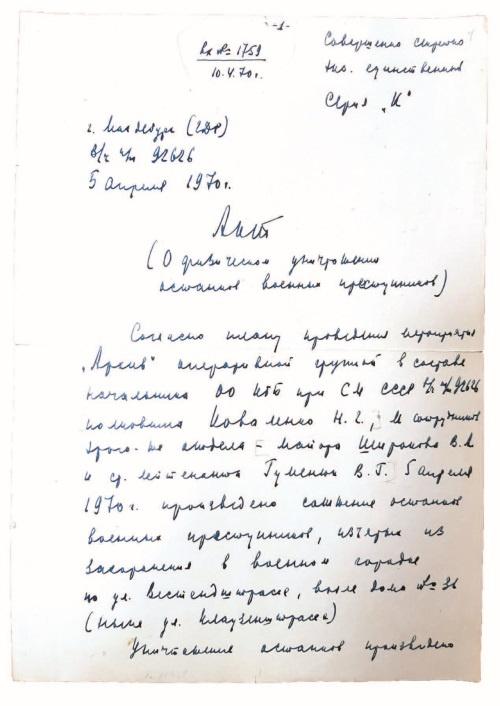 -1-
Вх № 1759
10.4.70г.
Совершенно секретно
экз. единственный
Серия „К“
г. Магдебург (ГДР)
в/ч п/п 92626
5 апреля 1970г.
Акт
(О физическом уничтожении
останков военных преступников)
Согласно плану проведения мероприятия
„Архив“ оперативной группой в составе
начальника ОО КГБ при СМ СССР в/ч п/п 92626
полковника Коваленко Н.Г., и сотрудников
того же отдела - майора Широкова В.Н.
и ст. лейтенанта Гуменюк В.Г. 5 апреля
1970г. произведено сожжение останков
военных преступников, изъятых из
захоронения в военном городке
по ул. Вестендштрассе, возле дома № 36
(ныне ул. Клаузенштрассе)
Уничтожение останков произведено